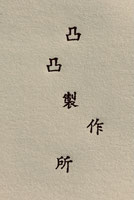 凸凸製作所